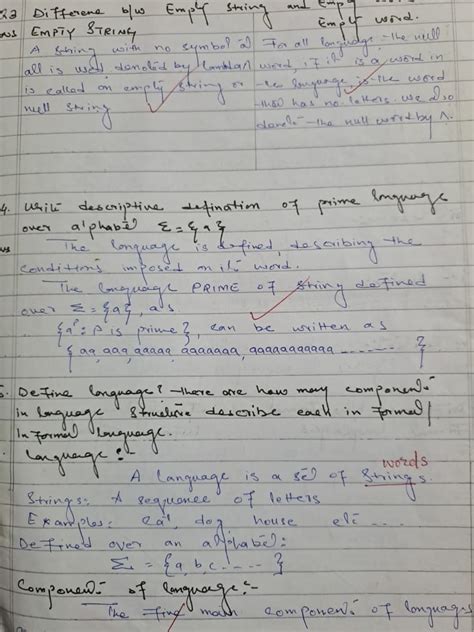 Q3 Difference b/w Empty String and Empty
Empty word.
ans EMPTY STRING
A string with no symbol at
all is used, denoted by (lambda)
is called an empty string or
null string
For all language, the null
word, if it is a word in
the language is the word
that has no letters. we also
denote the null word by Λ.
4. Write descriptive defination of prime language
over alphabet Σ = {a}
ans The language is defined, describing the
conditions imposed on its word.
The language PRIME of string defined
over Σ = {a}, as
{aᵖ: p is prime}, can be written as
{aa, aaa, aaaaa, aaaaaaa, aaaaaaaaaaa ...... }
5. Define language? there are how many components
in language structure describe each in formal/
informal language.
language :-
words
A language is a set of strings
Strings: A sequence of letters
Examples: cat, dog house etc ...
Defined over an alphabet:
Σ = {a, b, c ..... }
Components of language:-
The five main components of languages